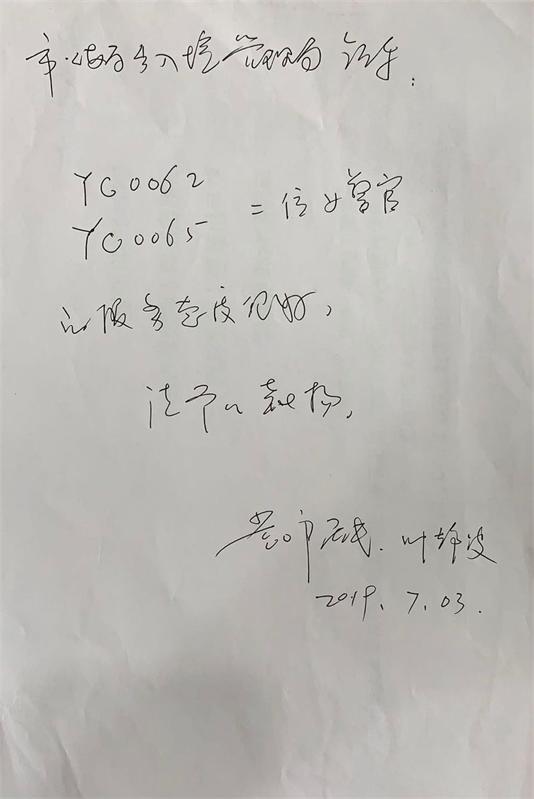 市公安局出入境管理局领导：
YC0062
YC0065
二位女警官
的服务态度很好，
请予以表扬，
市民. 叶静波
2019. 7. 03.